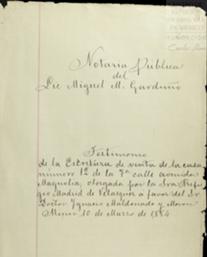 Notaria Pública
del
Lic Miguel M. Garduño
Testimonio
de la Escritura de venta de la casa
número 12 de la 7ª calle avenida
Magnolia, otorgada por la Sra Refu-
gio Madrid de Velazquez a favor del Sr
Doctor Ygnacio Maldonado y Moron
Mexico 10 de Marzo de